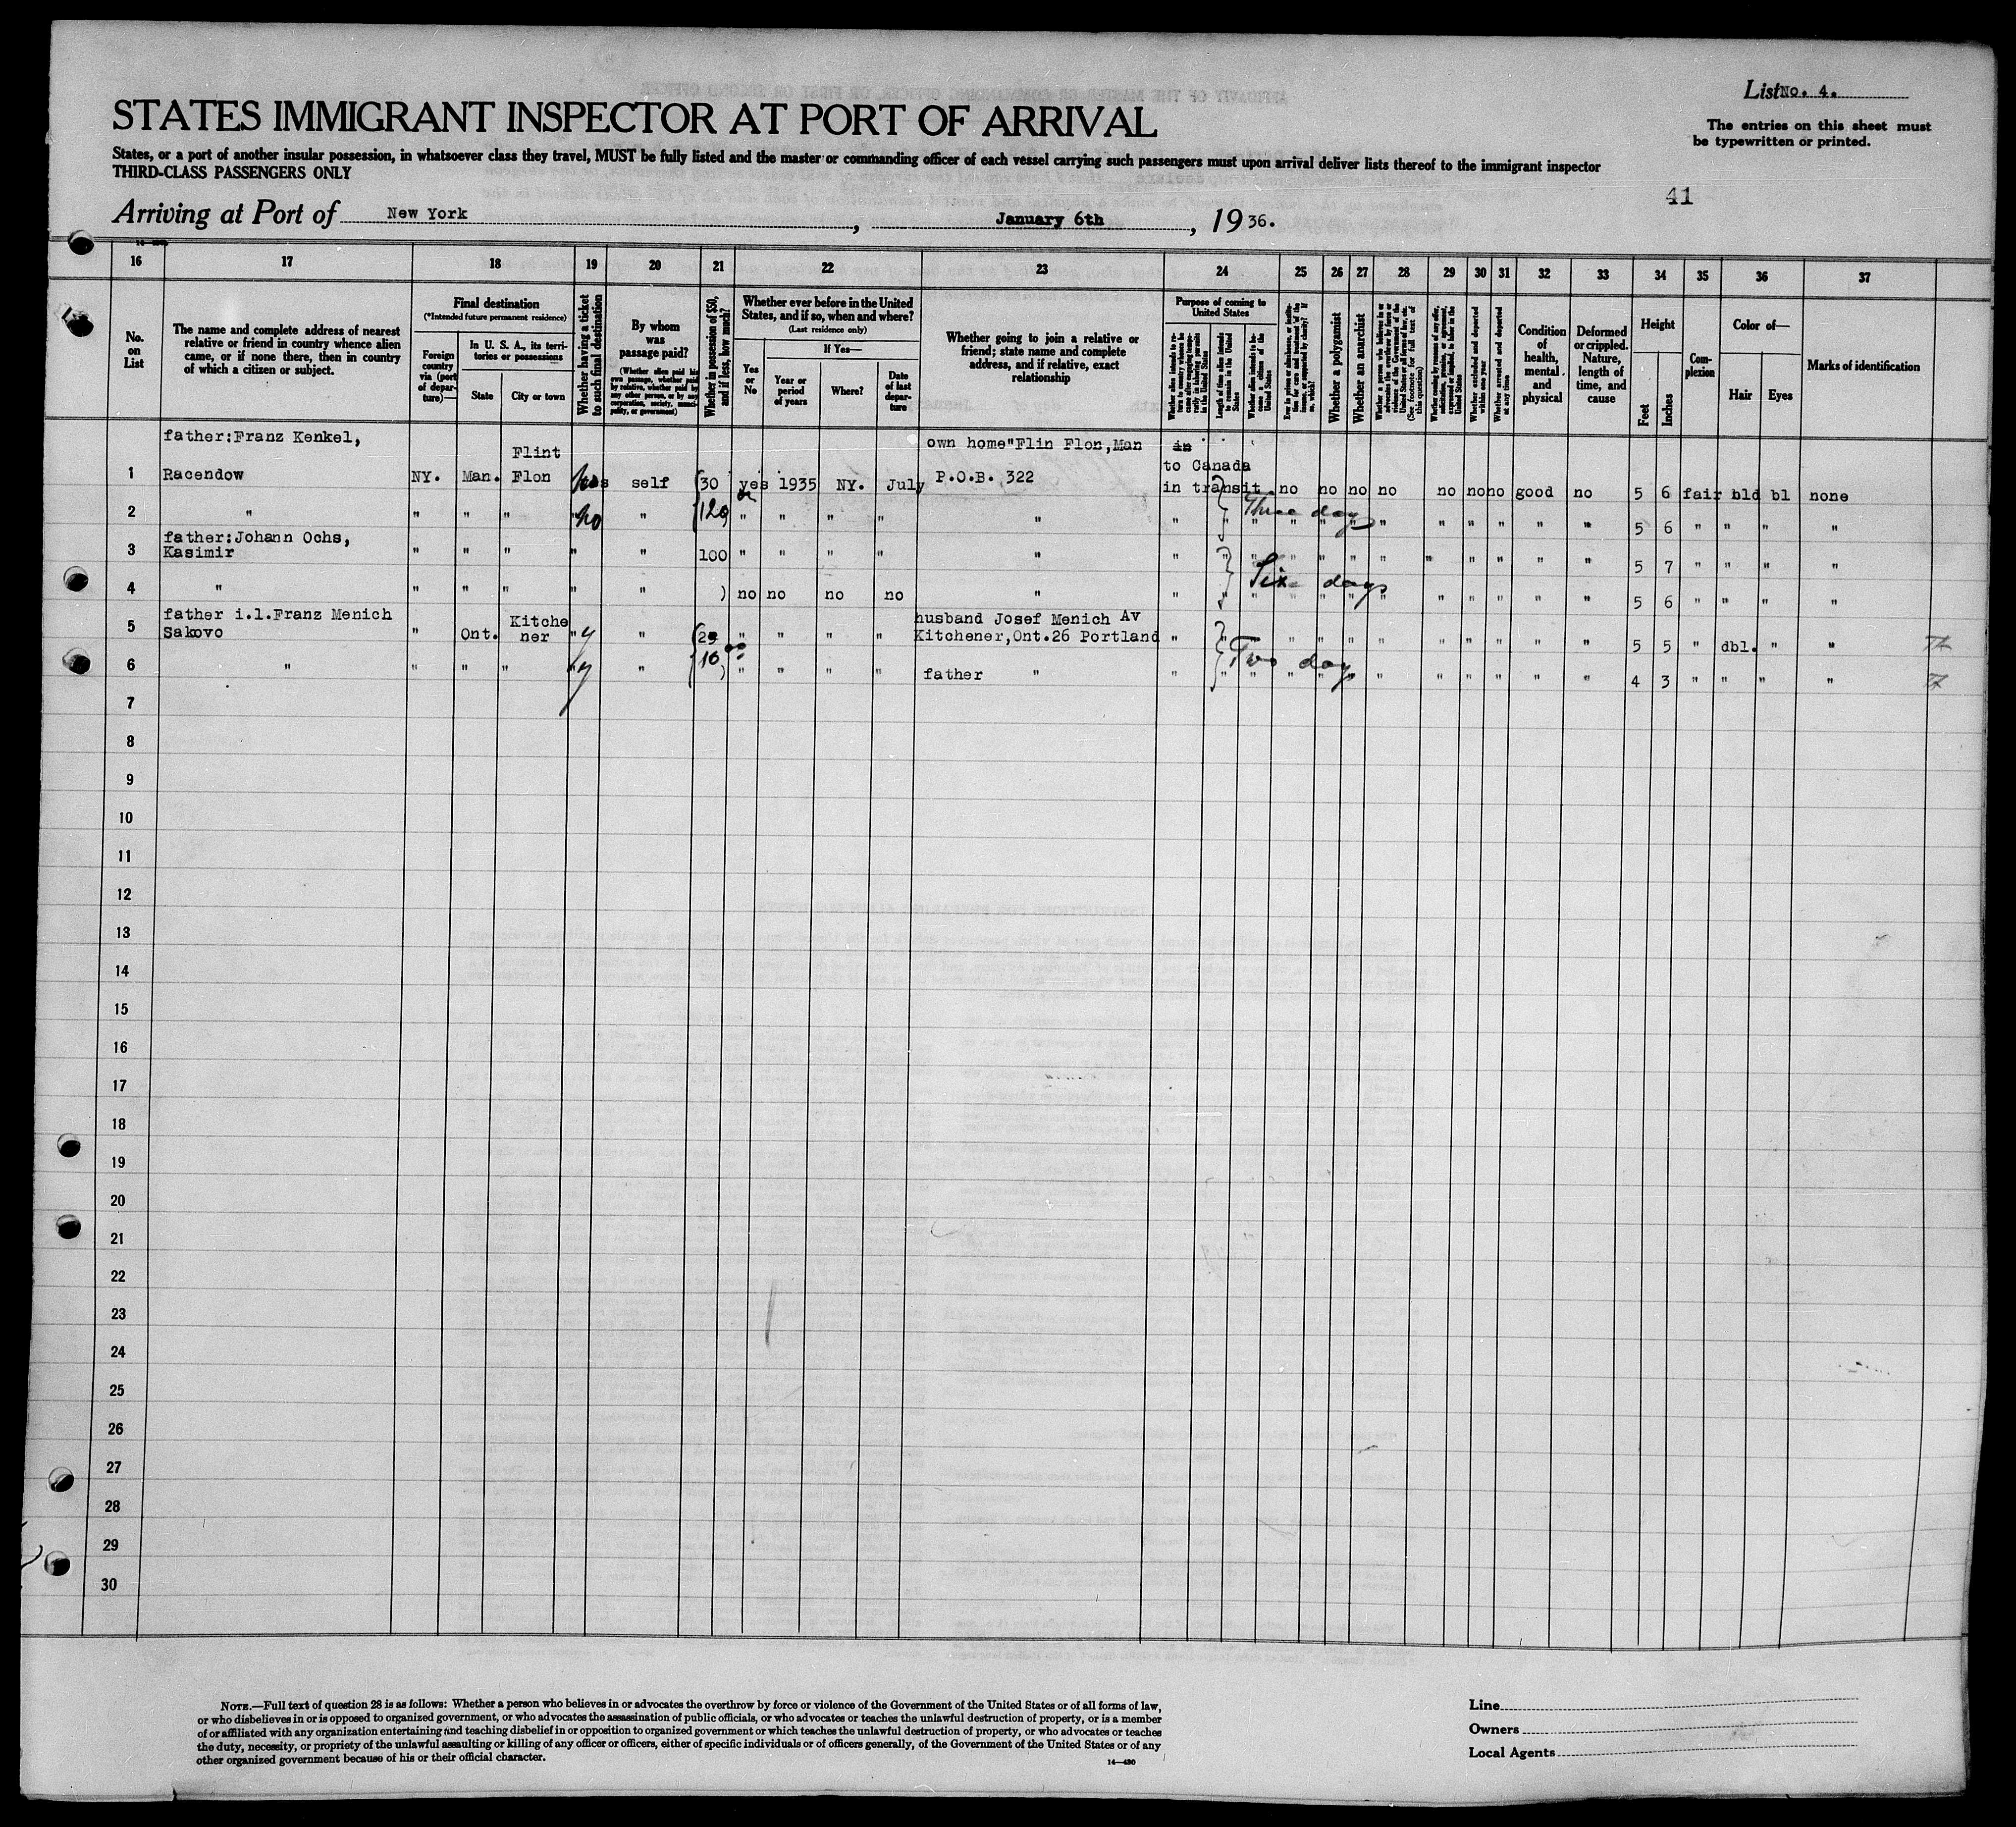 List No. 4.
STATES IMMIGRANT INSPECTOR AT PORT OF ARRIVAL
The entries on this sheet must
be typewritten or printed.
States, or a port of another insular possession, in whatsoever class they travel, MUST be fully listed and the master or commanding officer of each vessel carrying such passengers must upon arrival deliver lists thereof to the immigrant inspector
THIRD-CLASS PASSENGERS ONLY
41
Arriving at Port of New York, January 6th, 1936.
16 17 18 19 20 21 22 23 24 25 26 27 28 29 30 31 32 33 34 35 36 37
No. on List
The name and complete address of nearest relative or friend in country whence alien came, or if none there, then in country of which a citizen or subject.
Final destination
(*Intended future permanent residence)
Foreign country via (port of departure)—
In U. S. A., its territories or possessions
State
City or town
Whether having a ticket to such final destination
By whom was passage paid?
(Whether alien paid his own passage, whether paid by relative, whether paid by any other person, or by any corporation, society, municipality, or government)
Whether in possession of $50, and if less, how much?
Whether ever before in the United States, and if so, when and where?
(Last residence only)
Yes or No
If Yes—
Year or period of years
Where?
Date of last departure
Whether going to join a relative or friend; state name and complete address, and if relative, exact relationship
Purpose of coming to United States
Length of time alien intends to remain in the United States
Whether alien intends to become a citizen of the United States
Whether a polygamist
Whether an anarchist
Whether excluded and deported within one year
Whether arrested and deported at any time
Condition of health, mental and physical
Deformed or crippled. Nature, length of time, and cause
Height
Feet
Inches
Complexion
Color of—
Hair
Eyes
Marks of identification
father:Franz Kenkel, Flint own home"Flin Flon,Man in
to Canada
1 Racendow NY. Man. Flon self 30 yes 1935 NY. July P.O.B., 322 in transit no no no no no no no good no 5 6 fair bld bl none
2 " " " " no " 120 " " " " " " Three days " " " " " " 5 6 " " " "
father:Johann Ochs,
3 Kasimir " " " " " 100 " " " " " " " " " " " " " " " " " 5 7 " " " "
4 " " " " " " ) no no no no " " Six days " " " " " " 5 6 " " " "
father i.l.Franz Menich Kitche husband Josef Menich Av
5 Sakovo " Ont. ner " y " " " " " Kitchener,Ont.26 Portland " " " " " " " " " " " " 5 5 " dbl. " "
6 " " " " " y " 10 " " " " father " " Two days " " " " " " 4 3 " " " "
7
8
9
10
11
12
13
14
15
16
17
18
19
20
21
22
23
24
25
26
27
28
29
30
NOTE.—Full text of question 28 is as follows: Whether a person who believes in or advocates the overthrow by force or violence of the Government of the United States or of all forms of law,
or who disbelieves in or is opposed to organized government, or who advocates the assassination of public officials, or who advocates or teaches the unlawful destruction of property, or is a member
of or affiliated with any organization entertaining and teaching disbelief in or opposition to organized government or which teaches the unlawful destruction of property, or who advocates or teaches
the duty, necessity, or propriety of the unlawful assaulting or killing of any officer or officers, either of specific individuals or of officers generally, of the Government of the United States or of any
other organized government because of his or their official character.
14—430
Line
Owners
Local Agents